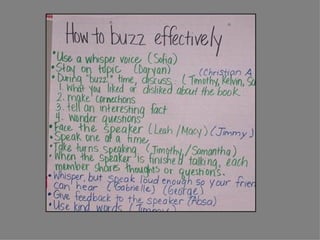 How to buzz effectively
• Use a whisper voice (Sofia)
• Stay on topic (Daryan) (Christian A.
• During "buzz" time, discuss: (Timothy, Kelvin, Sa
1. What you liked or disliked about the book
2. make connections
3. tell an interesting fact
4. Wonder questions
• Face the speaker (Leah/Macy) (Jimmy)
• Speak one at a time
• Take turns speaking (Timothy/Samantha)
• When the speaker is finished talking, each
member shares thoughts or questions.
• Whisper, but speak loud enough so your frien
can hear (Gabrielle) (George)
• Give feedback to the speaker (Absa)
• Use kind words (Jimmy)